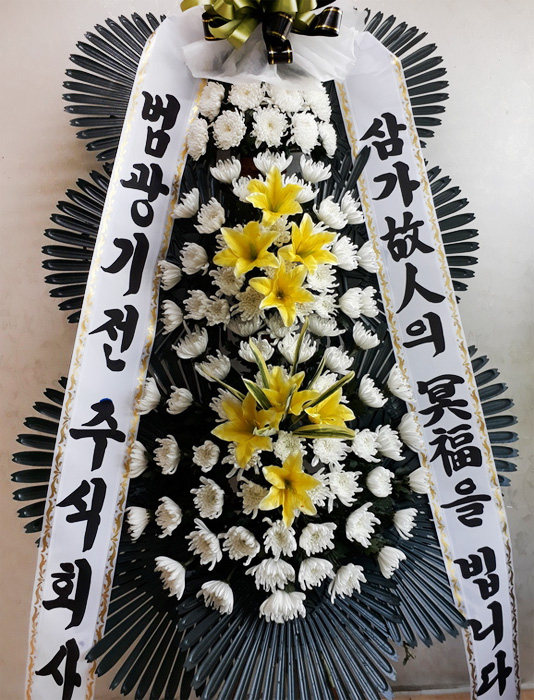 삼가故人의 冥福을 빕니다
범광기전 주식회사